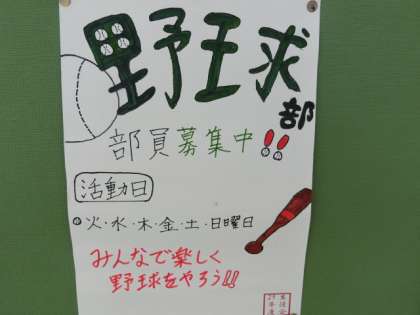 野球部
部員募集中!!
活動日
火・水・木・金・土・日曜日
みんなで楽しく
野球をやろう!!